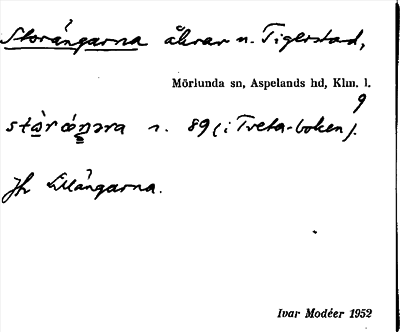 Storängarna åkrar n. Tigerstad,
Mörlunda sn, Aspelands hd, Klm. l.
9
stòrǽŋəra s. 89 (i Tveta-boken).
Jfr Lillängarna.
Ivar Modéer 1952